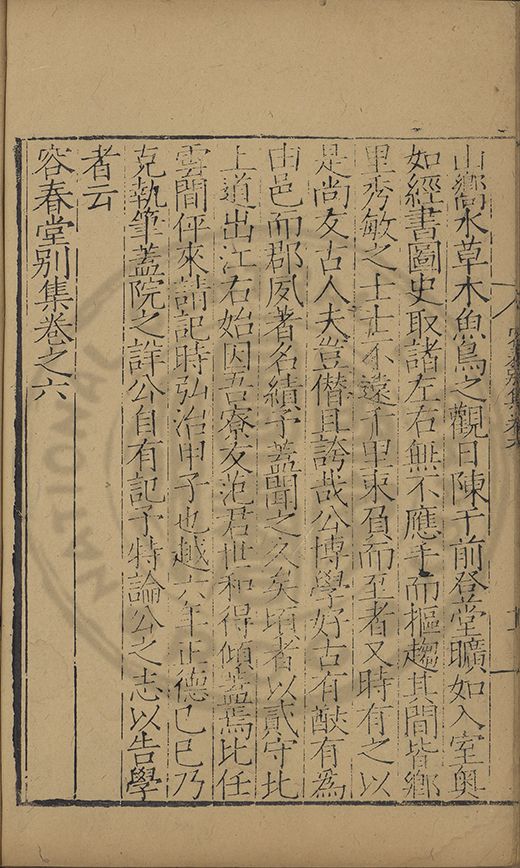 山嚮水草木魚鳥之觀日陳于前登堂曠如入室奧
如經書圖史取諸左右無不應手而樞趨其間皆鄉
里秀敏之士士不遠千里束負而至者又時有之以
是尚友古人夫豈僭且誇哉公博學好古有猷有為
由邑而郡夙著名績予蓋聞之久矣頃者以貳守北
上道出江右始因吾寮友范君世和得傾蓋焉比任
雲間伻來請記時弘治甲子也越六年正德己巳乃
克執筆蓋院之詳公自有記予特論公之志以告學
者云
容春堂別集卷之六